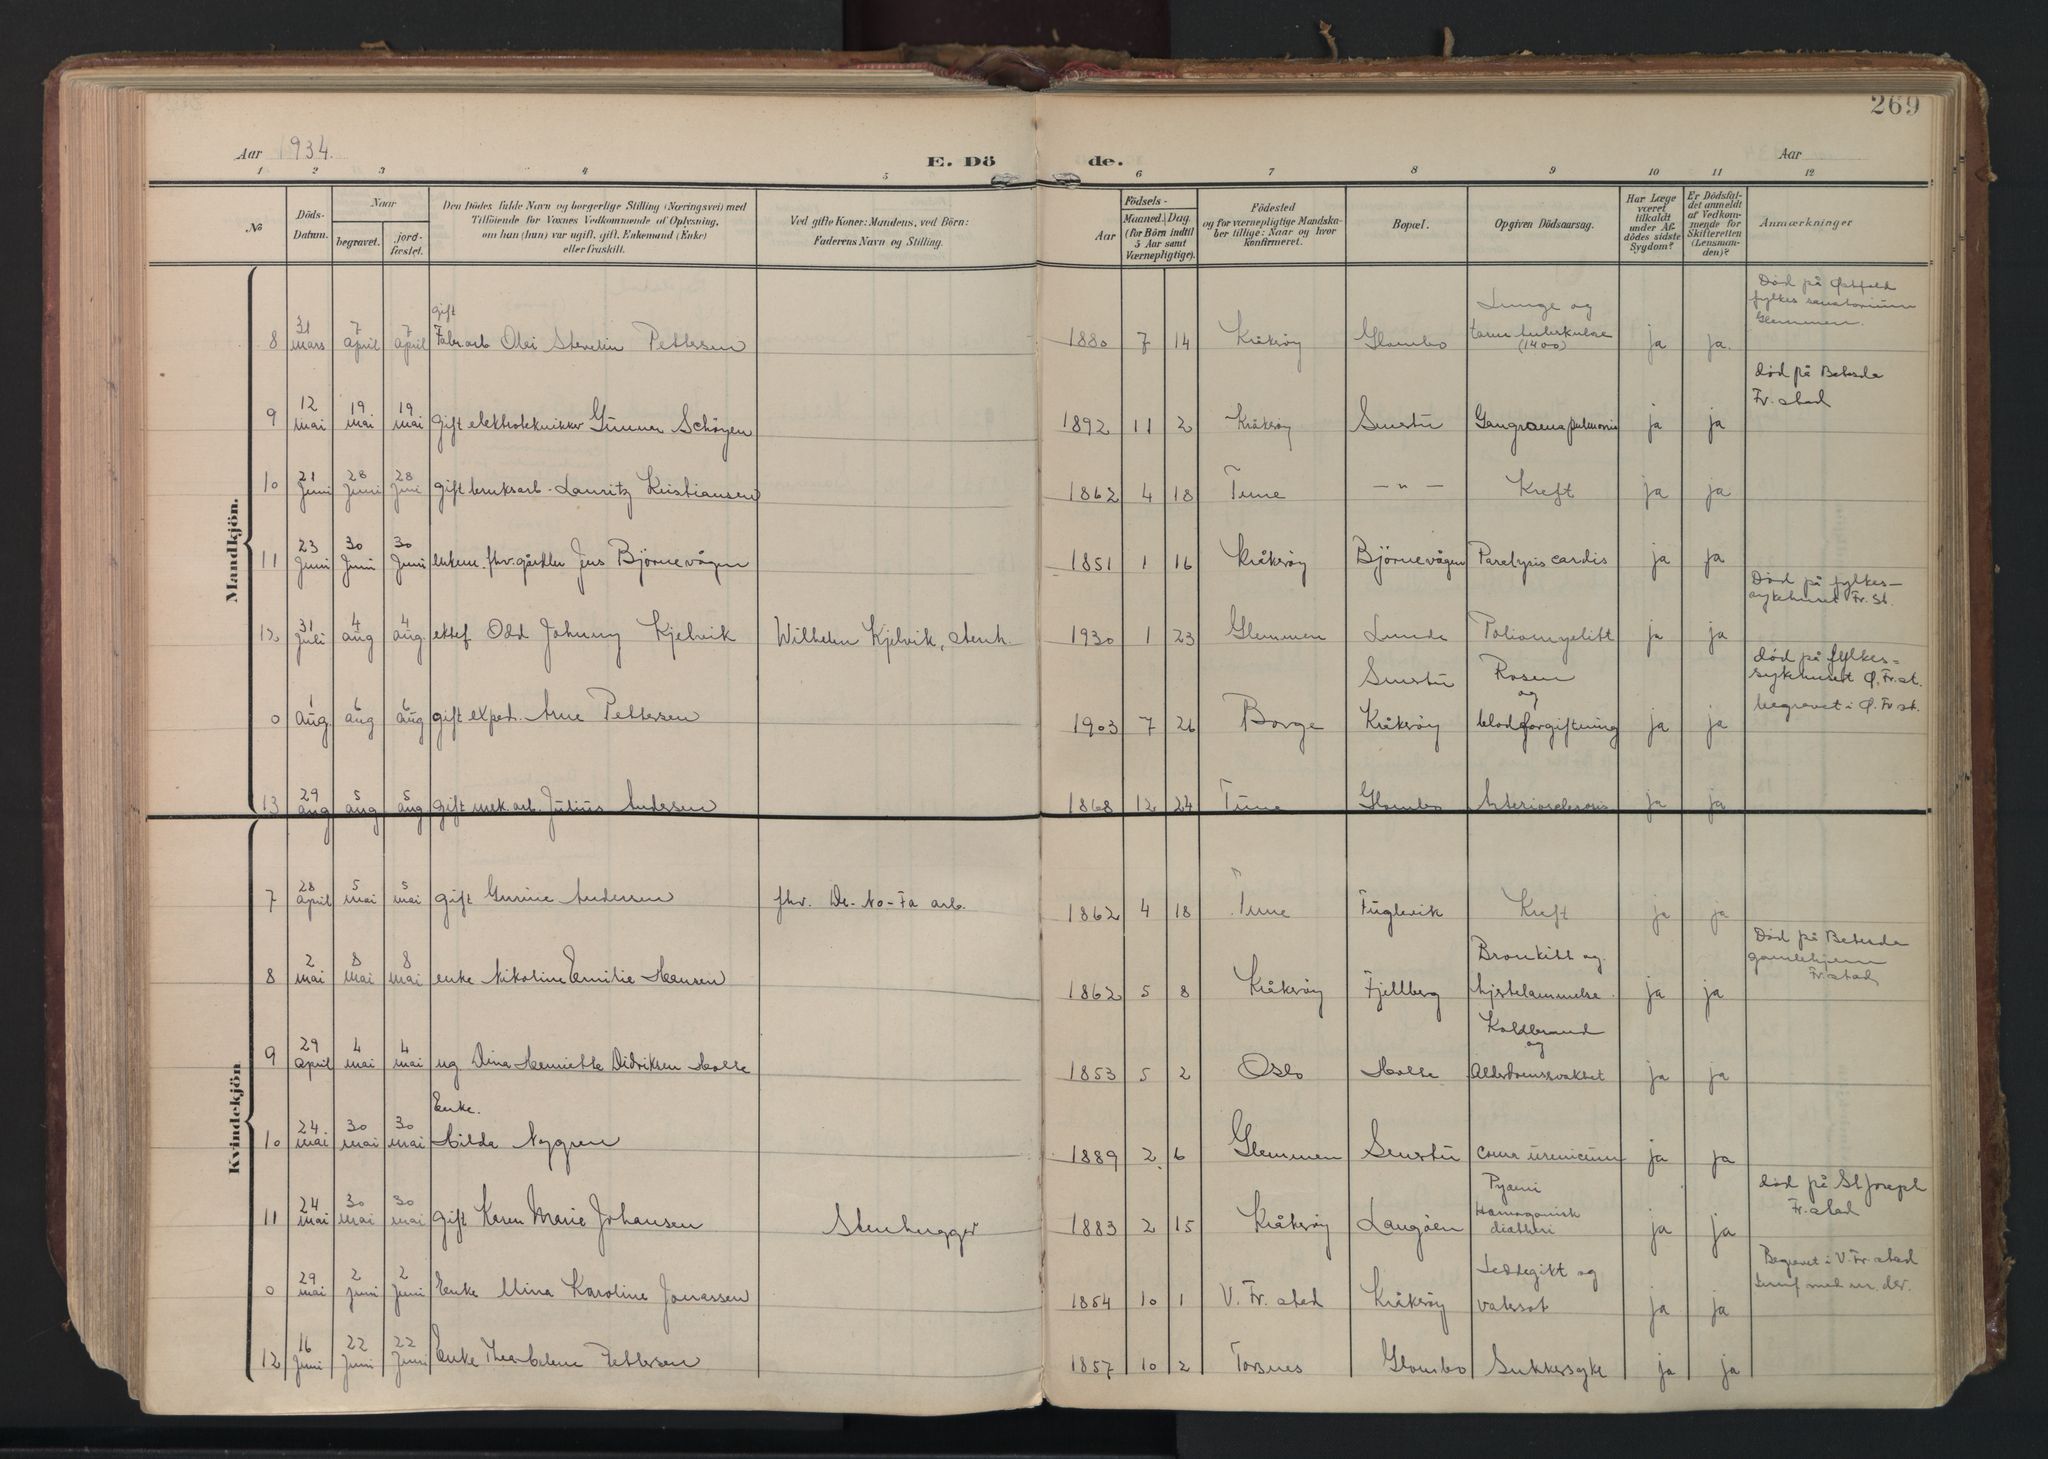 269
Aar 1934.
E. Dö de.
Aar
1 2 3 4 5 6 7 8 9 10 11 12
No
Döds-Datum.
Naar
begravet.
jord-fæstet.
Den Dödes fulde Navn og borgerlige Stilling (Næringsvei) med
Tilföiende for Voxnes Vedkommende af Oplysning,
om han (hun) var ugift, gift, Enkemand (Enke)
eller fraskilt.
Ved gifte Koner: Mandens, ved Börn:
Faderens Navn og Stilling.
Födsels-
Aar
Maaned. Dag.
(for Börn indtil
5 Aar samt
Værnepligtige).
Födested
og for værnepligtige Mandska-
ber tillige: Naar og hvor
konfirmeret.
Bopæl.
Opgiven Dödsaarsag.
Har Læge
været
tilkaldt
under Af-
dödes sidste
Sygdom?
Er Dödsfal-
det anmeldt
af Vedkom-
mende for
Skifteretten
(Lensman-
den)?
Anmærkninger
Mandkjön.
8 31 mars 7 april 7 april gift Fabrarb Olai Stevelin Pettersen 1880 7 14 Kråkrøy Glombo Lunge og tarm tuberkulose (1400) ja ja. Død på Østfold fylkes sanatorium Glemmen.
9 12 mai 19 mai 19 mai gift elektrotekniker Gunnar Schøyen 1892 11 2 Kråkrøy Smertu Gangraena pulmonis ja ja død på Betesda Fr.stad
10 21 Juni 28 Juni 28 Juni gift bruksarb. Lauritz Kristiansen 1862 4 18 Tune — " — Kreft ja ja
11 23 Juni 30 Juni 30 Juni enkem. fhv. gårdbr Jens Björnevågen 1851 1 16 Kråkrøy Björnevågen Paralysis cardis ja ja
12 31 Juli 4 aug 4 aug. ektef Odd Johnny Kjelvik Wilhelm Kjelvik, stenh. 1930 1 23 Glemmen Lunde Poliomyelitt ja ja Død på fylkes-sykehuset Fr.st.
0 1 aug. 6 aug 6 aug gift exped. Arne Pettersen 1903 7 26 Borge Smertu Kråkrøy Rosen og blodforgiftning ja ja død på fylkes=sykehuset Ø. Fr.st. begravet i Ø. Fr.st.
13 29 aug 5 aug 5 aug gift mek. arb. Julius Andersen 1868 12 24 Tune Glombo Arteriosclerosis ja ja
Kvindekjön
7 28 april 5 mai 5 mai gift Gurine Andersen fhv. De-No-Fa arb. 1862 4 18 Tune Fuglevik Kreft ja ja
8 2 mai 8 mai 8 mai enke Nikoline Emilie Hansen 1862 5 8 Kråkrøy Fjellberg Bronkitt og hjertelammelse. ja ja Død på Betesda gamlehjem Fr.stad
9 29 april 4 mai 4 mai ug Dina Henriette Didriksen Holte 1853 5 2 Oslo Holte Koldbrand og Alderdomssvakhet ja ja
10 24 mai. 30 mai 30 mai Enke. Hilda Nygren 1889 2 6 Glemmen Smertu coma uremicum ja ja
11 24 mai 30 mai 30 mai gift Karen Marie Johansen Stenhugger 1883 2 15 Kråkrøy Langøen Pyæmi ja ja død på St Joseph Fr.stad
0 29 mai 2 Juni 2 Juni Enke Mina Karoline Jonassen 1854 10 1 V. Fr.stad Kråkrøy Leddegikt og vatersot ja ja Begravet i V. Fr.stad
12 16 Juni 22 Juni 22 Juni Enke Thea Helene Pettersen 1857 10 2 Torsnes Glombo Sukkersyke ja ja